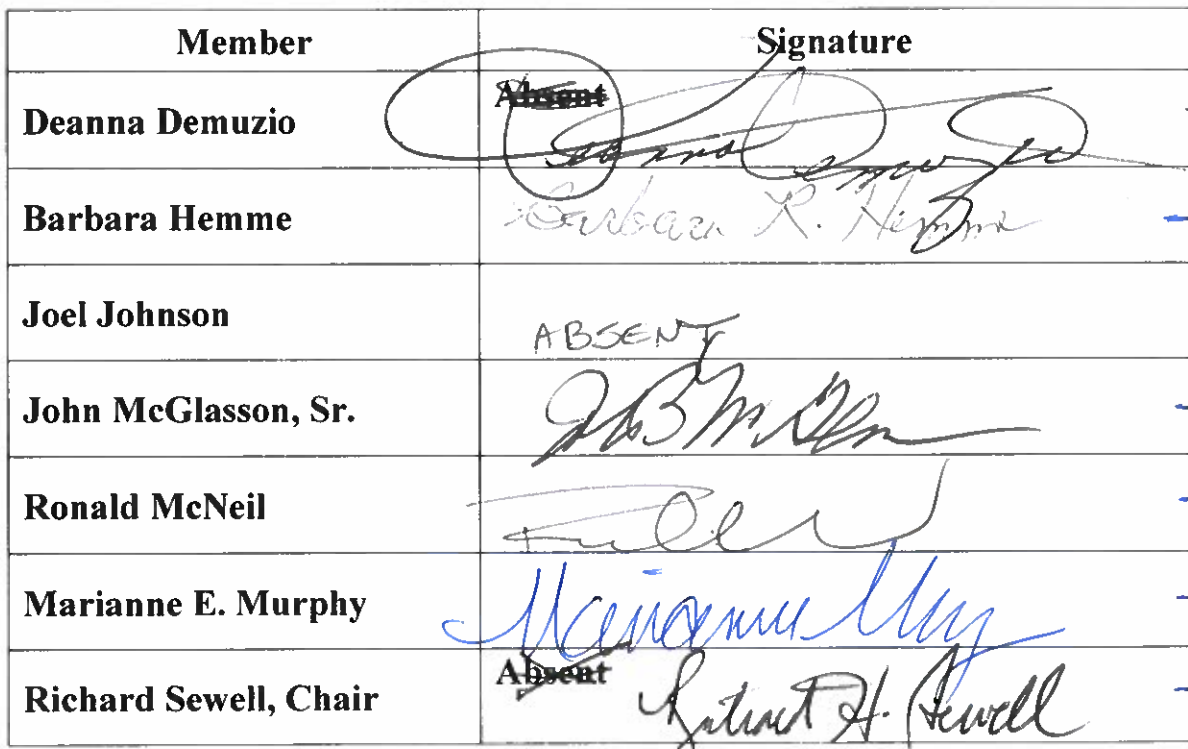 Member Signature
Absent
Deanna Demuzio Deanna Demuzio
Barbara Hemme Barbara R. Hemme
Joel Johnson ABSENT
John McGlasson, Sr.
Ronald McNeil
Marianne E. Murphy Marianne
Absent
Richard Sewell, Chair H. Sewell